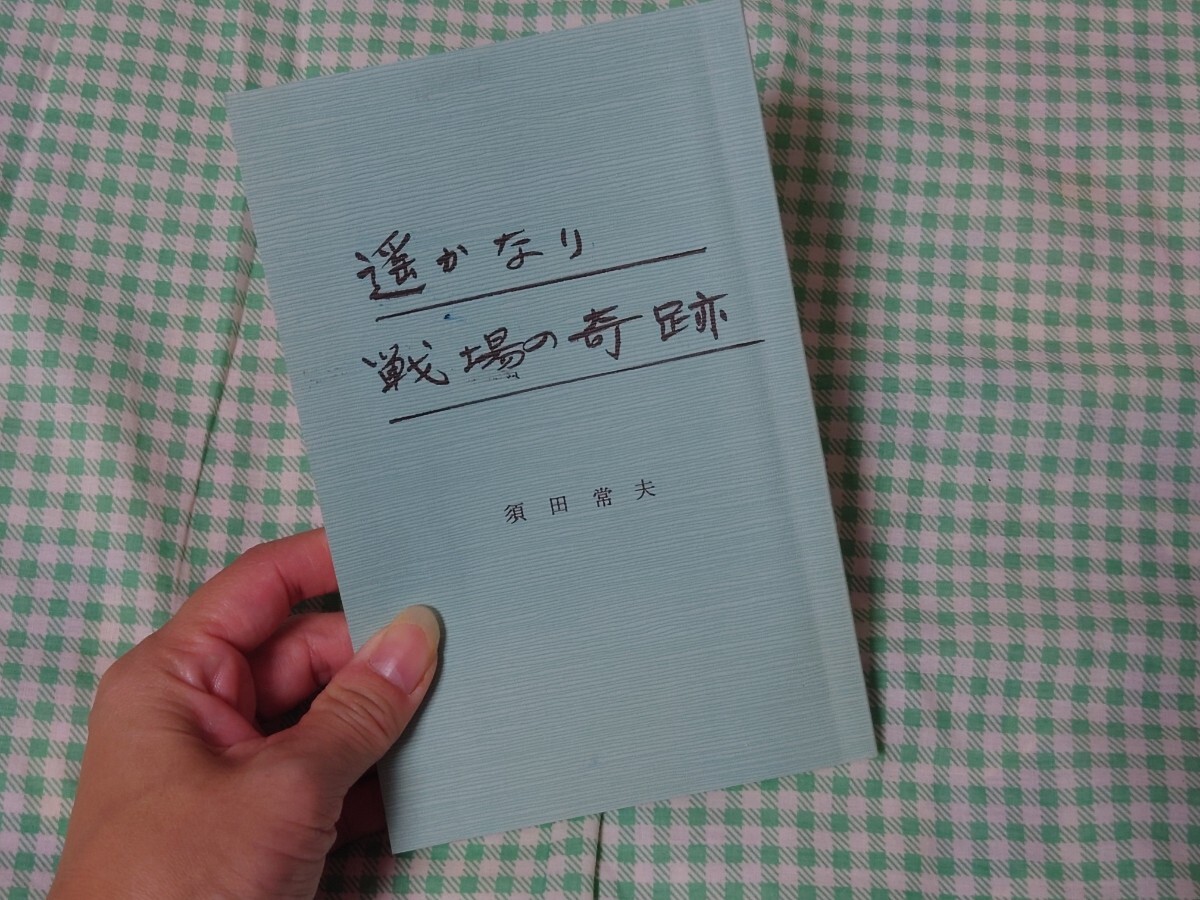 遥かなり
戦場の奇跡
須田常夫